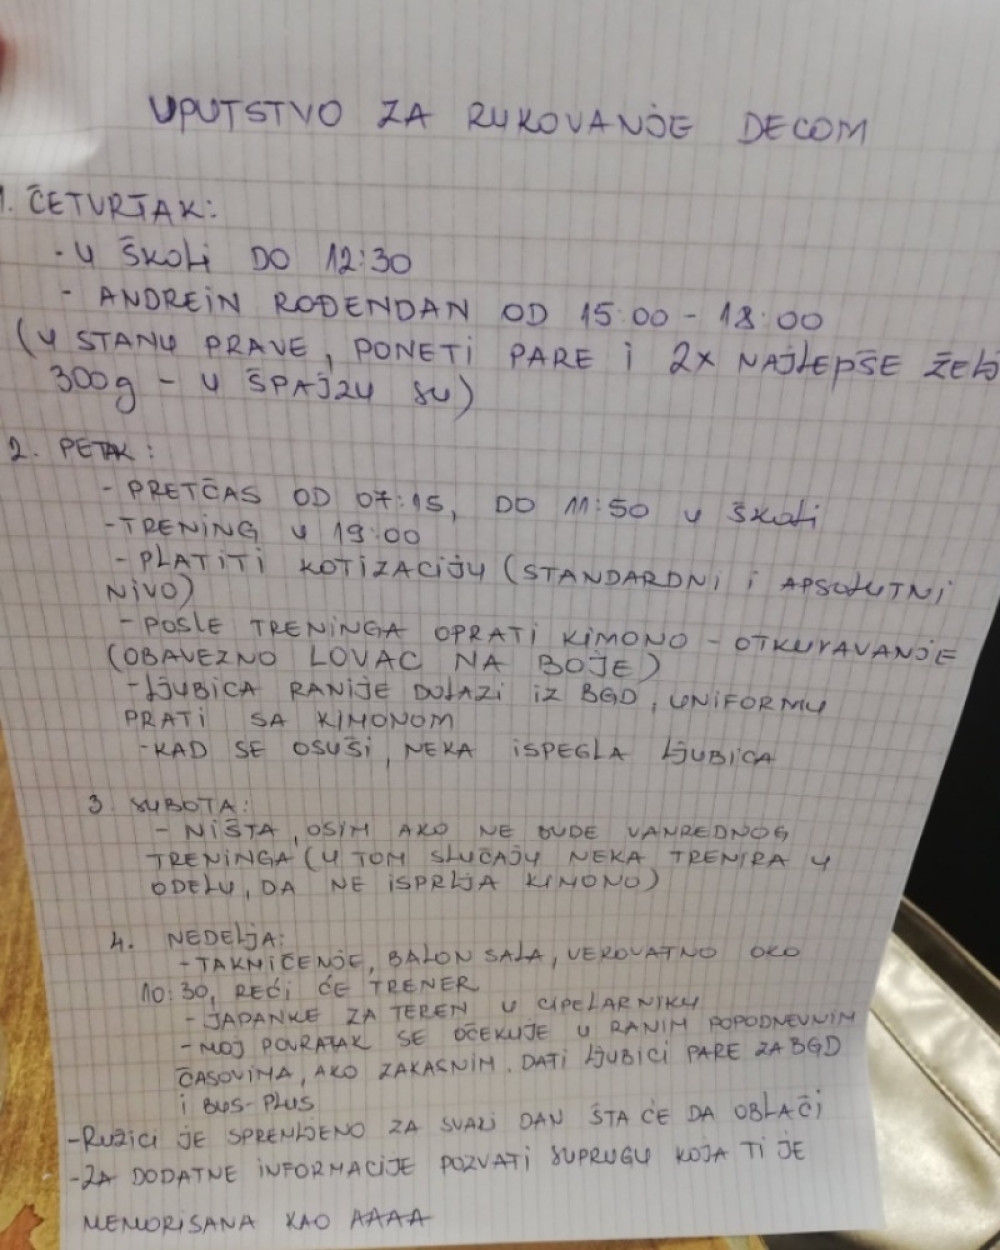 UPUTSTVO ZA RUKOVANJE DECOM
1. ČETVRTAK:
- U ŠKOLI DO 12:30
- ANDREIN ROĐENDAN OD 15:00 - 18:00
(U STANU PRAVE, PONETI PARE I 2X NAJLEPŠE ŽELJ
300g - U ŠPAJZU SU)
2. PETAK:
- PRETČAS OD 07:15, DO 11:50 U ŠKOLI
- TRENING U 19:00
- PLATITI KOTIZACIJU (STANDARDNI I APSOLUTNI
NIVO)
- POSLE TRENINGA OPRATI KIMONO - OTKUVAVANJE
(OBAVEZNO LOVAC NA BOJE)
- LJUBICA RANIJE DOLAZI IZ BGD, UNIFORMU
PRATI SA KIMONOM
- KAD SE OSUŠI, NEKA ISPEGLA LJUBICA
3. SUBOTA:
- NIŠTA, OSIM AKO NE BUDE VANREDNOG
TRENINGA (U TOM SLUČAJU NEKA TRENIRA U
ODELU, DA NE ISPRLJA KIMONO)
4. NEDELJA:
- TAKMIČENJE, BALON SALA, VEROVATNO OKO
10:30, REĆI ĆE TRENER
- JAPANKE ZA TEREN U CIPELARNIKU
- MOJ POVRATAK SE OČEKUJE U RANIM POPODNEVNIM
ČASOVIMA, AKO ZAKASNIM. DATI LJUBICI PARE ZA BGD
I BUS-PLUS
- RUŽICI JE SPREMLJENO ZA SVAKI DAN ŠTA ĆE DA OBLAČI
- ZA DODATNE INFORMACIJE POZVATI SUPRUGU KOJA TI JE
MEMORISANA KAO AAAA